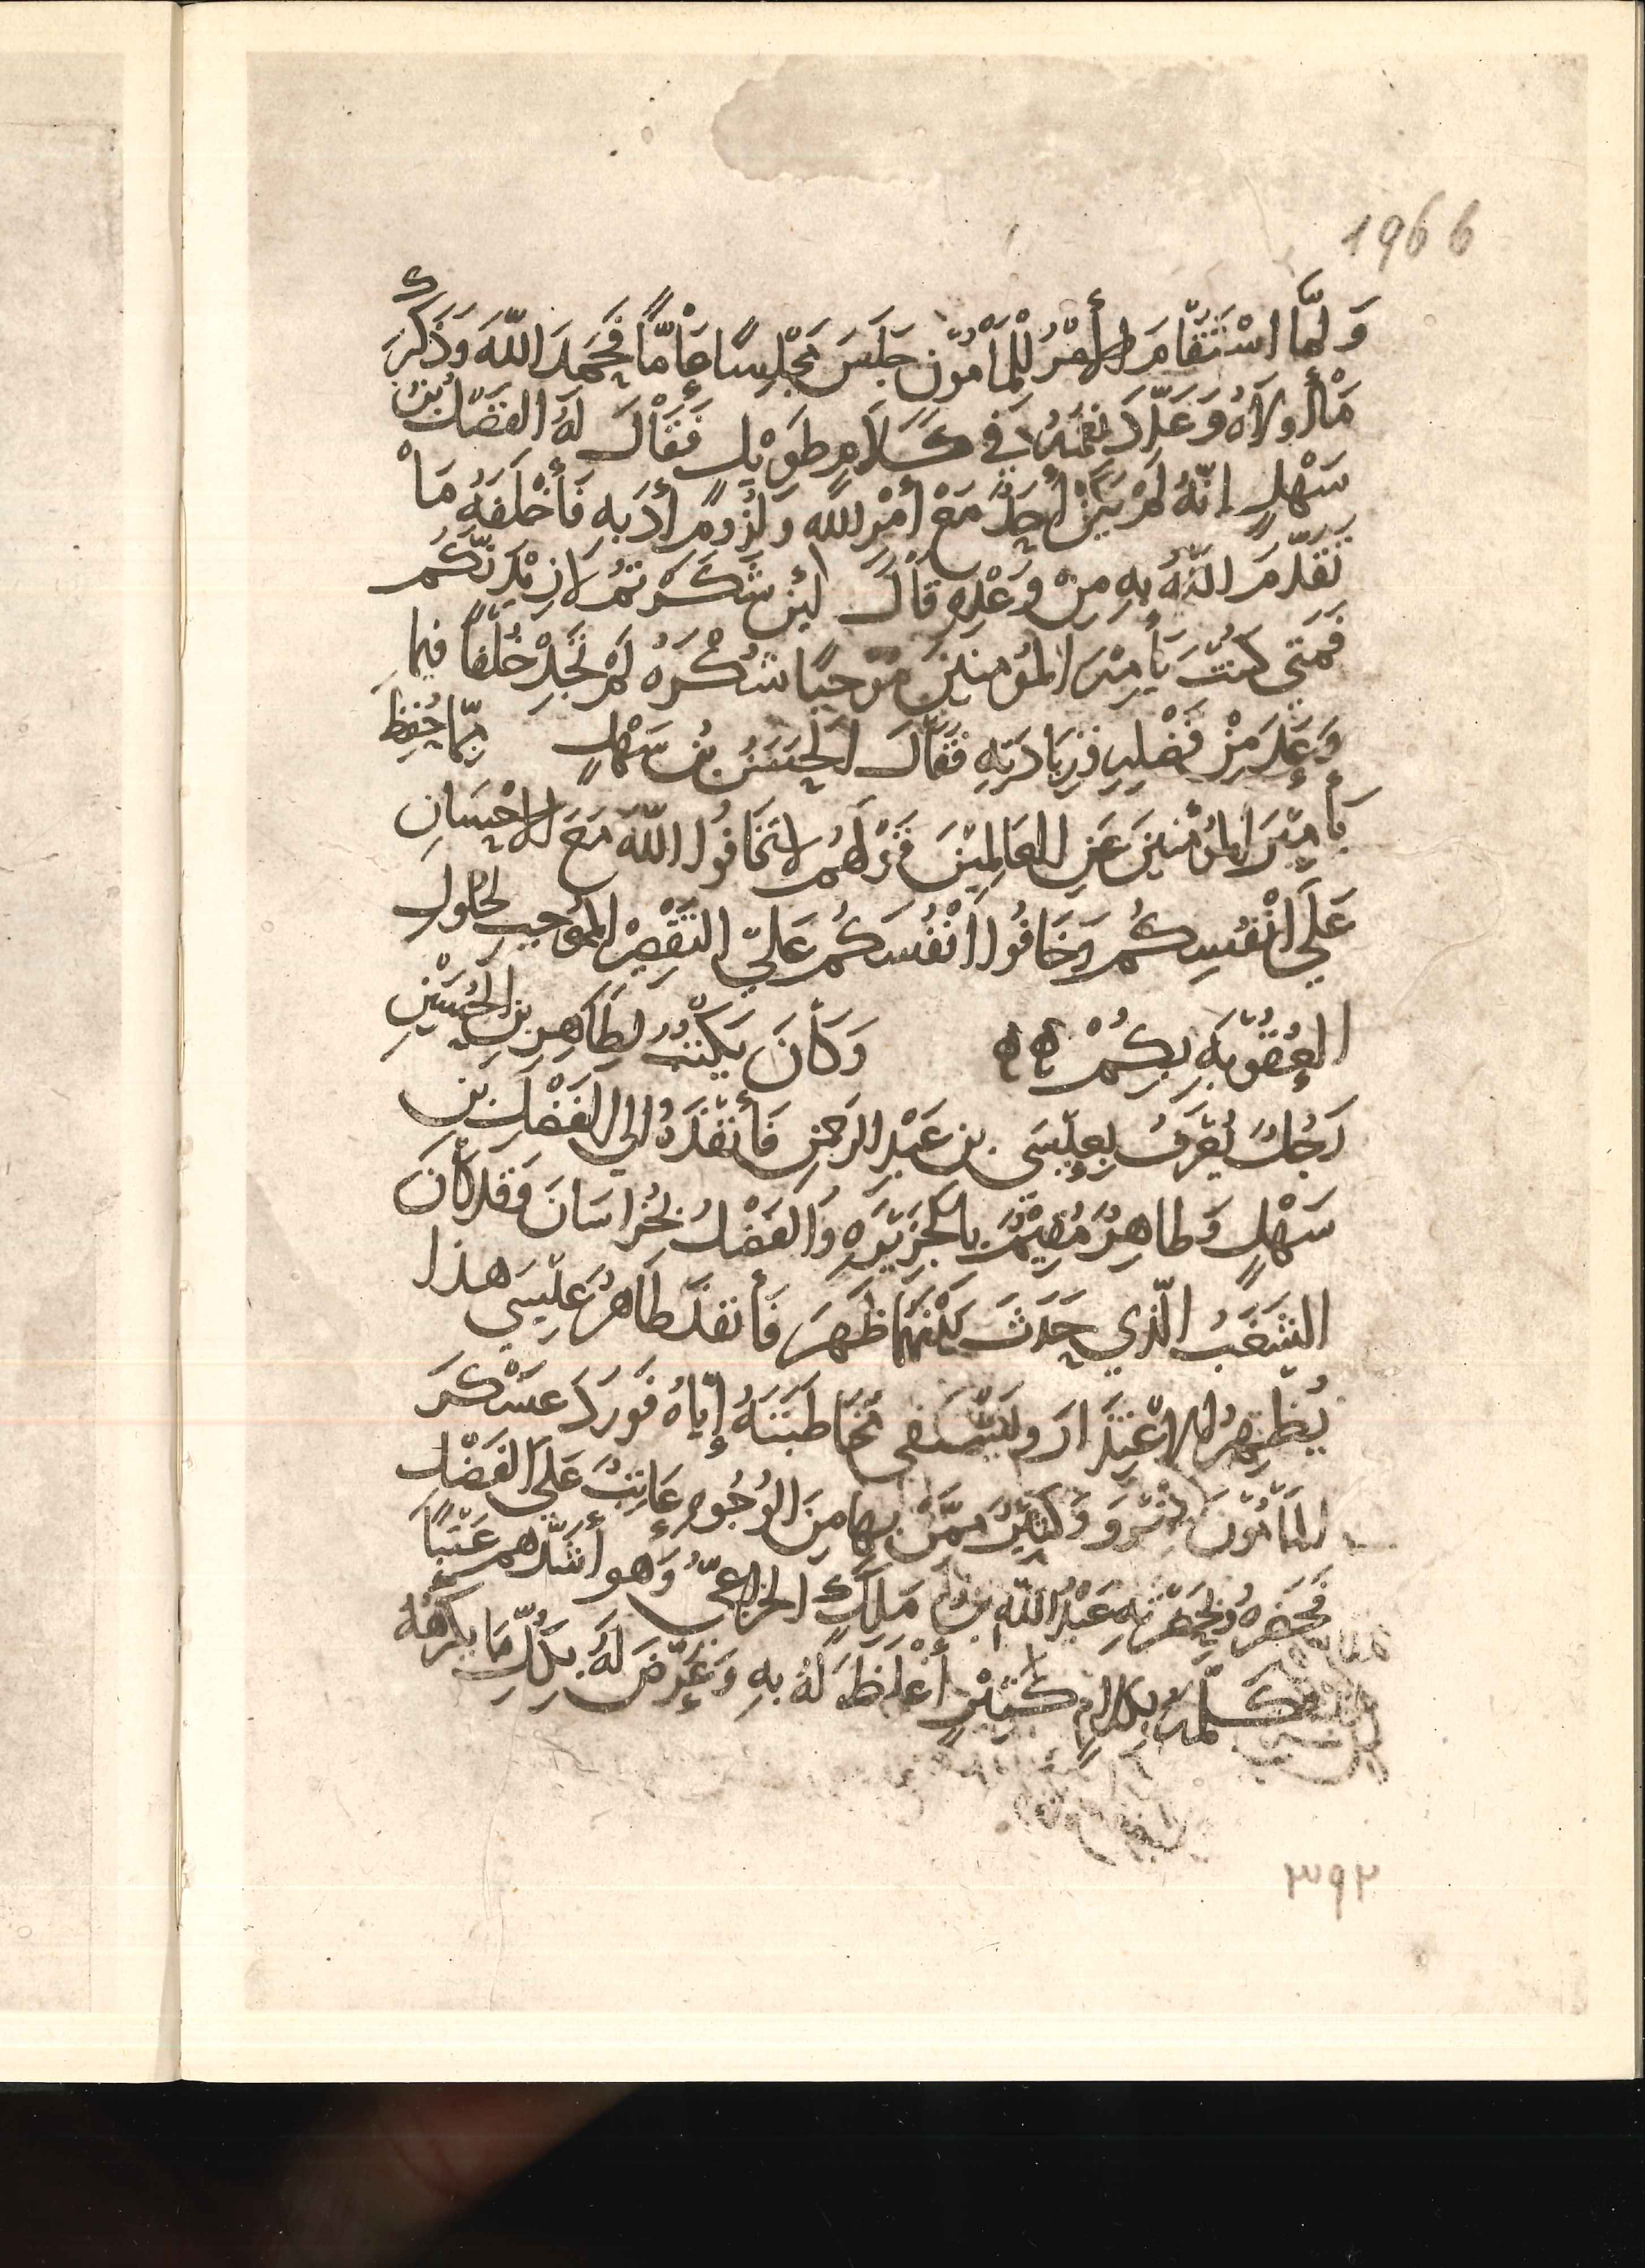 1966
وَلَمَّا اسْتَقَامَ الأَمْرُ لِلْمَأْمُون جَلَسَ مَجْلِسًا عَامًّا فَحَمِدَ اللّهَ وَذَكَرَ
مَا أولاهُ وَعَدَّدَ نِعَمَهُ فِي كَلَامٍ طَوِيْلٍ فَقَالَ لَهُ الفَضْلُ بْنُ
سَهْلٍ إِنَّهُ لَمْ يَكُنْ أَحَدٌ مَعَ أَمْرِ اللهِ وَلُزُومِ أَدَبِهِ فَأَخْلَفَهُ مَا
تَقَدَّمَ اللّهُ بِهِ مِنْ وَعْدِهِ قَالَ لَئِنْ شَكَرْتُمْ لَازِيْدَنَّكُم
فَمَتَي كُنْتَ يَا أَمِيْرَ المُؤْمِنِيْنَ مُوْجِبًا شُكْرَهُ لَمْ تَجِدْ خُلْفًا فِيمَا
وَعَدَ مِنْ فَضْلِهِ وَزِيَادَتِهِ فَقَالَ الحَسَنُ بْنُ سَهْلٍ مِمَّا حُفِظَ
يَا أَمِيْرَ المُؤْمِنِيْنَ عَنِ العَالِمِيْنَ قَوْلُهُم لا تَخَافُوا اللّهَ مَعَ الاحْسَانِ
عَلَي أَنْفُسِكُمْ وَخَافُوا أَنْفُسَكُمْ عَلَي التَّقْصِيْرِ المُوْجِبِ لِحُلُولِ
العُقُوْبَةِ بِكُمْ وَكَانَ يَكْتُبُ لِطَاهِرِ بْنِ الحُسَيْنِ
رَجُلٌ يُعْرَفُ بِعِيْسَى بن عَبْدِ الرَحمنِ فَأَنْفَذَهُ إلي الفَضْلِ بْنِ
سَهْلٍ وَطاهِرٌ مُقِيْمٌ بِالجَزِيْرَةِ وَالفَضْلُ بِخُرَاسَانَ وَقَد كَانَ
الشَّغَبُ الَّذِي حَدَثَ بَيْنَهُمَا ظَهَرَ فَأَنْفَذَ طَاهِرٌ عِيْسَي هذا
يُظْهِرُ الاعْتِذَارَ وَلِيَسْتَكْفِي مُخَاطَبَتَهُ إِيَّاهُ فَوَرَدَ عَسْكَرَ
المَأْمُوْنَ بِمَرْوَ وَكَثِيْرٌ مِمَّنْ بِهَا مِنَ الوُجُوهِ عَاتِبٌ عَلَي الفَضْلِ
فَحَضَرَهُ وَبِحَضْرَتِهِ عَبْدُ اللّهِ بْنُ مَلِكٍ الخُزَاعِيُّ وَهو أَشَدُّهم عَتْبًا
فَكَلَّمَهُ بِكَلامٍ كَثِيْرٍ أَغْلَظَ لَهُ بِهِ وَعَرَّضَ لَهُ بِكُلِّ مَا يَكْرَهُهُ
٣٩٢